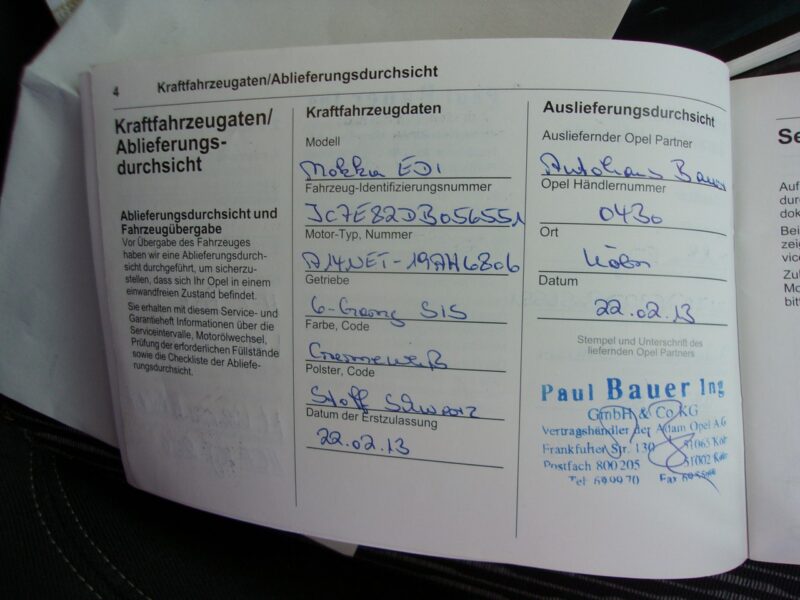 4 Kraftfahrzeugaten/Ablieferungsdurchsicht
Kraftfahrzeugaten/
Ablieferungs-
durchsicht
Ablieferungsdurchsicht und
Fahrzeugübergabe
Vor Übergabe des Fahrzeuges
haben wir eine Ablieferungsdurch-
sicht durchgeführt, um sicherzu-
stellen, dass sich Ihr Opel in einem
einwandfreien Zustand befindet.
Sie erhalten mit diesem Service- und
Garantieheft Informationen über die
Serviceintervalle, Motorölwechsel,
Prüfung der erforderlichen Füllstände
sowie die Checkliste der Abliefe-
rungsdurchsicht.
Kraftfahrzeugdaten
Modell
Mokka EDI
Fahrzeug-Identifizierungsnummer
JC7E82DB056551
Motor-Typ, Nummer
A14NET-19AH6806
Getriebe
6-Gang S/S
Farbe, Code
Polster, Code
Stoff Schwarz
Datum der Erstzulassung
22.02.13
Auslieferungsdurchsicht
Ausliefernder Opel Partner
Autohaus Bauer
Opel Händlernummer
0430
Ort
Köln
Datum
22.02.13
Stempel und Unterschrift des
liefernden Opel Partners
Paul Bauer Ing
GmbH & Co KG
Vertragshändler der Adam Opel AG
Frankfurter Str. 130 51065 Köln
Postfach 800205 51002 Köln
Tel 69 99 70 Fax
Se
Auf
durc
dok
Bei
zeig
vice
Zu
Mo
bitt